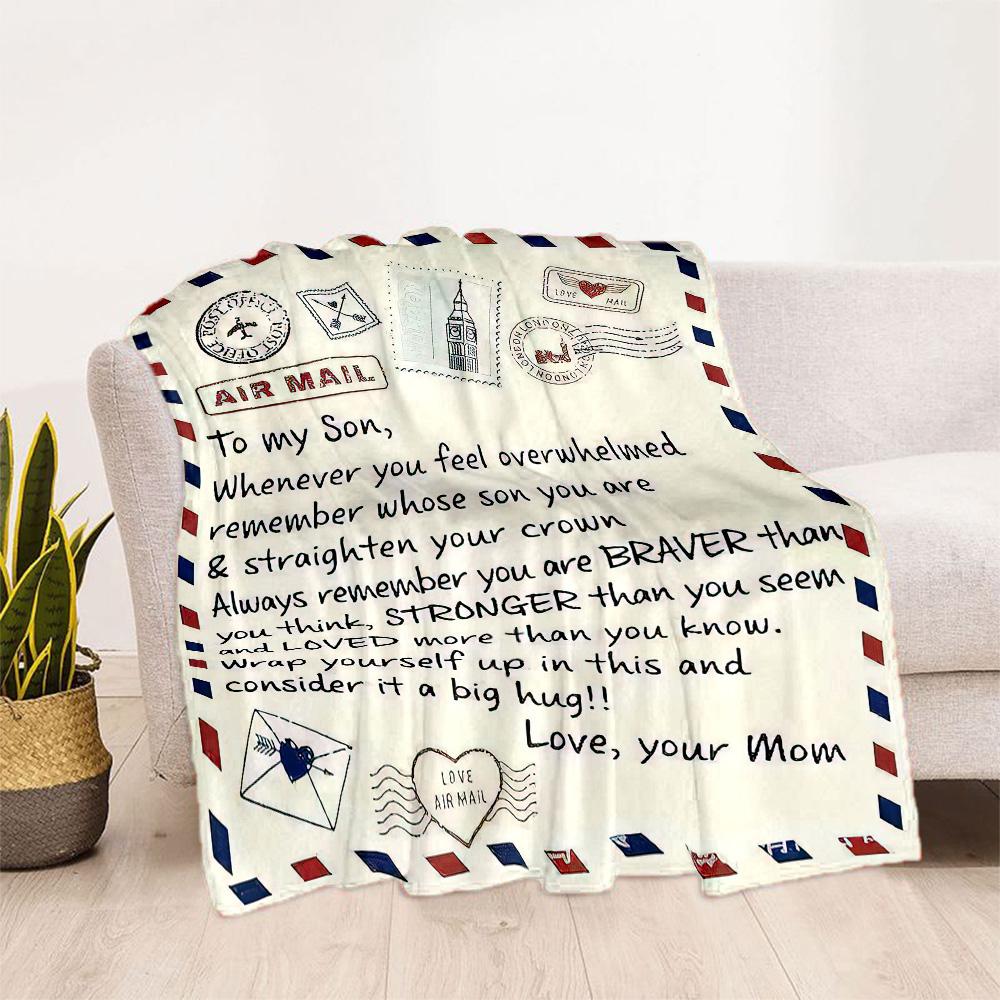 POST OFFICE POST OFFICE
LOVE MAIL
LONDON LONDON LONDON
AIR MAIL
To my Son,
Whenever you feel overwhelmed
remember whose son you are
& straighten your crown
Always remember you are BRAVER than
you think, STRONGER than you seem
and LOVED more than you know.
Wrap yourself up in this and
consider it a big hug!!
Love, your Mom
LOVE
AIR MAIL